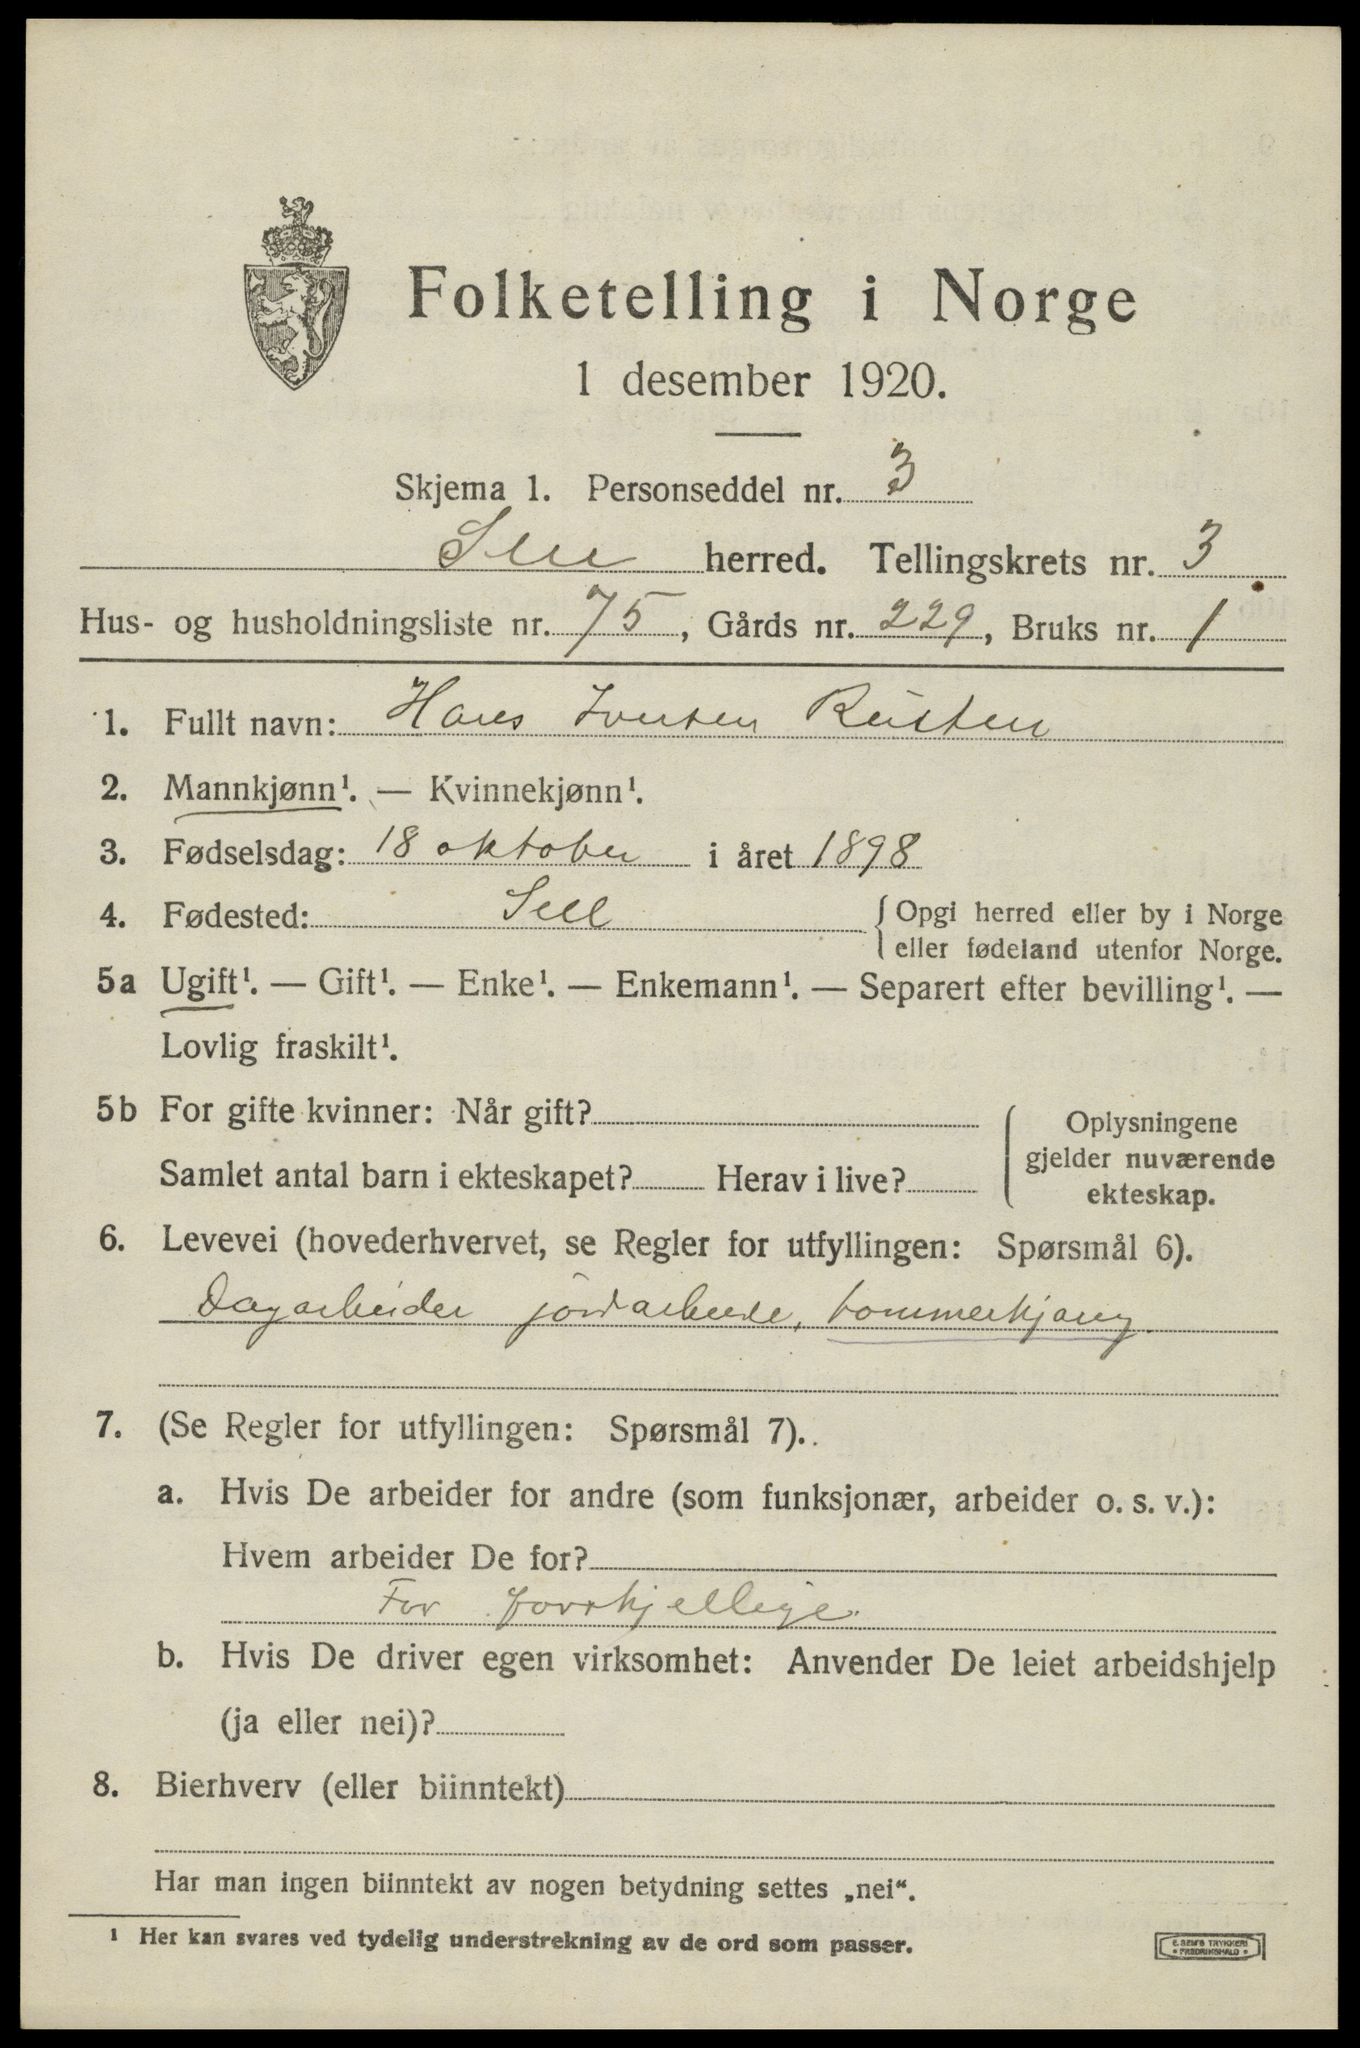 Folketelling i Norge
1 desember 1920.
Skjema 1. Personseddel nr. 3
Sell herred. Tellingskrets nr. 3
Hus- og husholdningsliste nr. 75, Gårds nr. 229, Bruks nr. 1
1. Fullt navn: Hans Iversen Rusten
2. Mannkjønn¹. — Kvinnekjønn¹.
3. Fødselsdag: 18 oktober i året 1898
4. Fødested: Sell { Opgi herred eller by i Norge
eller fødeland utenfor Norge.
5a Ugift¹. — Gift¹. — Enke¹. — Enkemann¹. — Separert efter bevilling¹. —
Lovlig fraskilt¹.
5b For gifte kvinner: Når gift? Oplysningene
gjelder nuværende
Samlet antal barn i ekteskapet? Herav i live? ekteskap.
6. Levevei (hovederhvervet, se Regler for utfyllingen: Spørsmål 6).
Dagarbeider jordarbeide, tommerkjøring.
7. (Se Regler for utfyllingen: Spørsmål 7).
a. Hvis De arbeider for andre (som funksjonær, arbeider o. s. v.):
Hvem arbeider De for?
For forskjellige.
b. Hvis De driver egen virksomhet: Anvender De leiet arbeidshjelp
(ja eller nei)?
8. Bierhverv (eller biinntekt)
Har man ingen biinntekt av nogen betydning settes „nei“.
¹ Her kan svares ved tydelig understrekning av de ord som passer.
E. SEM'S TRYKKERI
• FREDRIKSHALD •